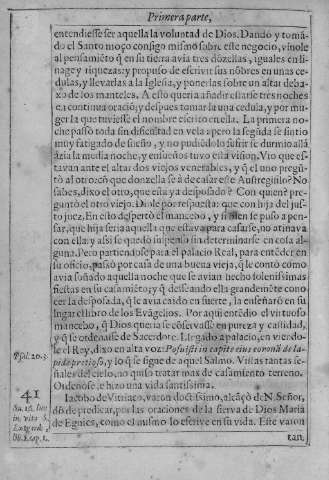 Primera parte,
entendiesse ser aquella la voluntad de Dios. Dando y tomã
do el Santo moço consigo mismo sobre este negocio, vinole
al pensamiẽto q̃ en su tierra avia tres dõzellas, iguales en li
nage y riquezas: y propuso de escrivir sus nõbres en unas ce
dulas, y llevarlas a la Iglesia, y ponerlas sobre un altar deba
xo de los manteles. A esto queria añadir estarse tres noches
en continua oraciõ; y despues tomar la una cedula, y por mu
ger la que tuviesse el nombre escrito en ella. La primera no
che passò toda sin dificultad en vela: pero la segũda se sintio
muy fatigado de sueño, y no pudiẽdolo sufrir se durmio allà
àzia la media noche, y en sueños tuvo esta vision. Vio que es
tavan ante el altar dos viejos venerables, y q̃ el uno pregũ
tò al otro: cõ que donzella se à de casar este Ausfregisilo? No
sabes, dixo el otro, que està ya desposado? Con quien? pre
guntò el otro viejo. Diole por respuesta: que con hija del jus
to juez. En esto despertò el mancebo, y si bien se puso a pen-
sar, que hija seria aquella que estava para casarse, no atinava
con ella: y assi se quedò suspenso sin determinarse en cosa al
guna. Pero partiendose para el palacio Real, para entẽder en
su oficio, passò por casa de una buena vieja, q̃ le contò como
avia soñado aquella noche que se avian hecho solenissimas
fiestas en su casamiẽto; y q̃ desseando ella grandemẽte cono-
cer la desposada, q̃ le avia caido en suerte, la enseñarõ en su
lugar el libro de los Evãgelios. Por aqui entẽdio el virtuoso
mancebo, q̃ Dios queria se cõservasse en pureza y castidad,
y q̃ se ordenasse de Sacerdote. Llegado a palacio, en viendo-
le el Rey, dixo en alta voz: Posuisti in capite eius coronã de la-
pide pretioso, y lo que se sigue de aquel Salmo. Vistas tantas se-
ñales del cielo, no quiso tratar mas de casamiento terreno.
Ordenose, e hizo una vida santissima.
Psal. 20. 3.
Iacobo de Vitriaco, varon doctissimo, alcãçò de N. Señor,
dõ de predicar, por las oraciones de la sierva de Dios Maria
de Egnies, como el mismo lo escrive en su vida. Este varon
41
tan